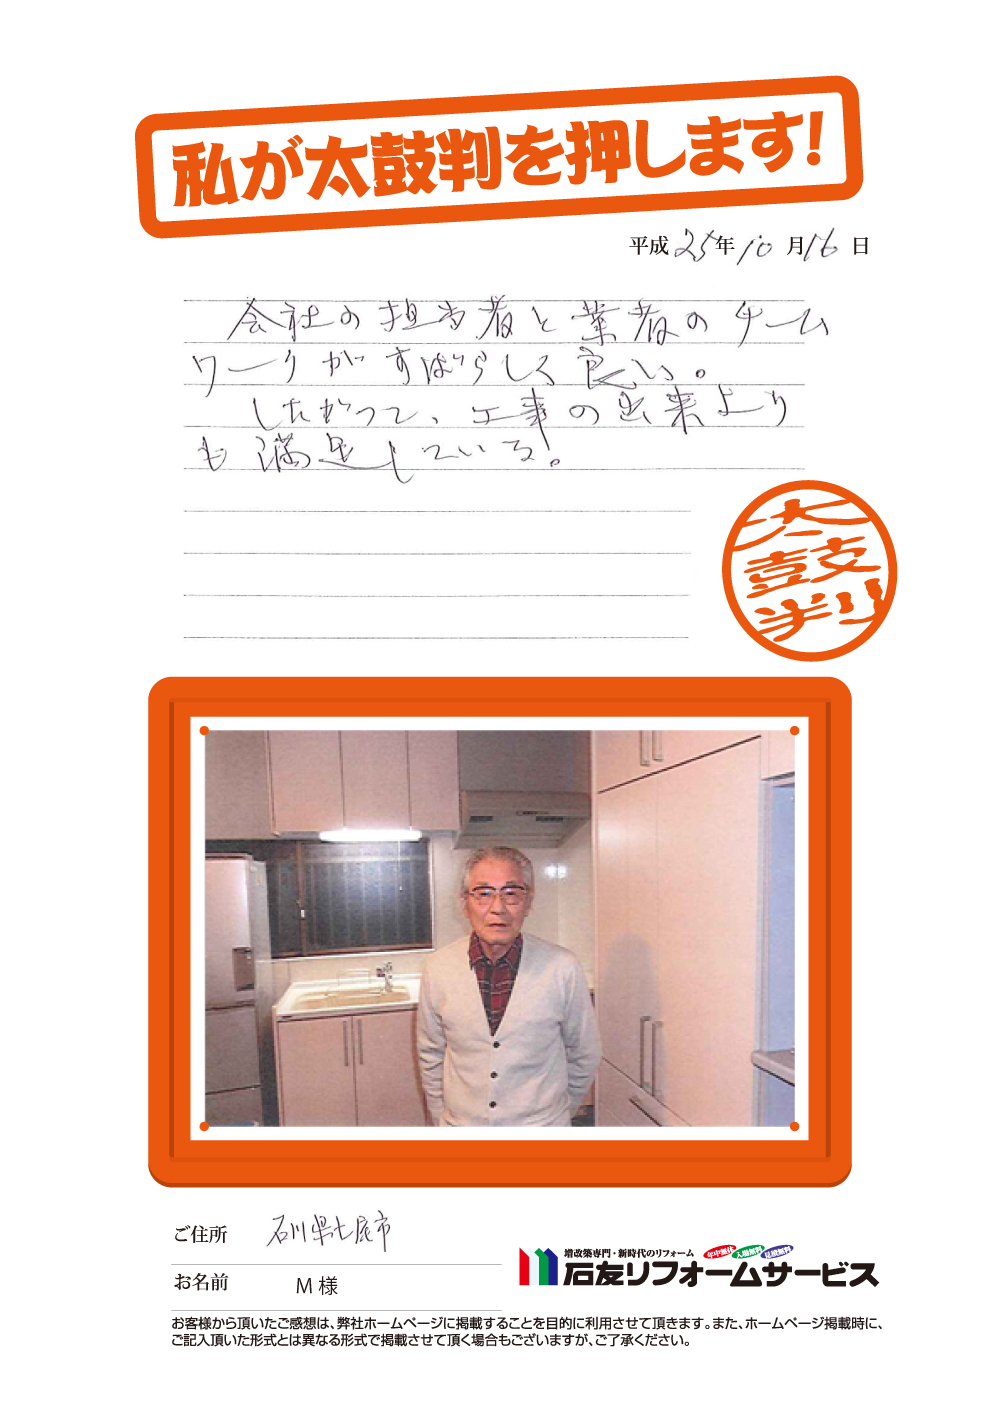 私が太鼓判を押します!
平成25年10月16日
会社の担当者と業者のチーム
ワークがすばらしく良い。
したがって、工事の出来より
も満足している!。
太鼓判
ご住所 石川県七尾市
増改築専門・新時代のリフォーム 年中無休 入場無料 見積無料
石友リフォームサービス
お名前 M様
お客様から頂いたご感想は、弊社ホームページに掲載することを目的に利用させて頂きます。また、ホームページ掲載時に、
ご記入頂いた形式とは異なる形式で掲載させて頂く場合もございますが、ご了承ください。